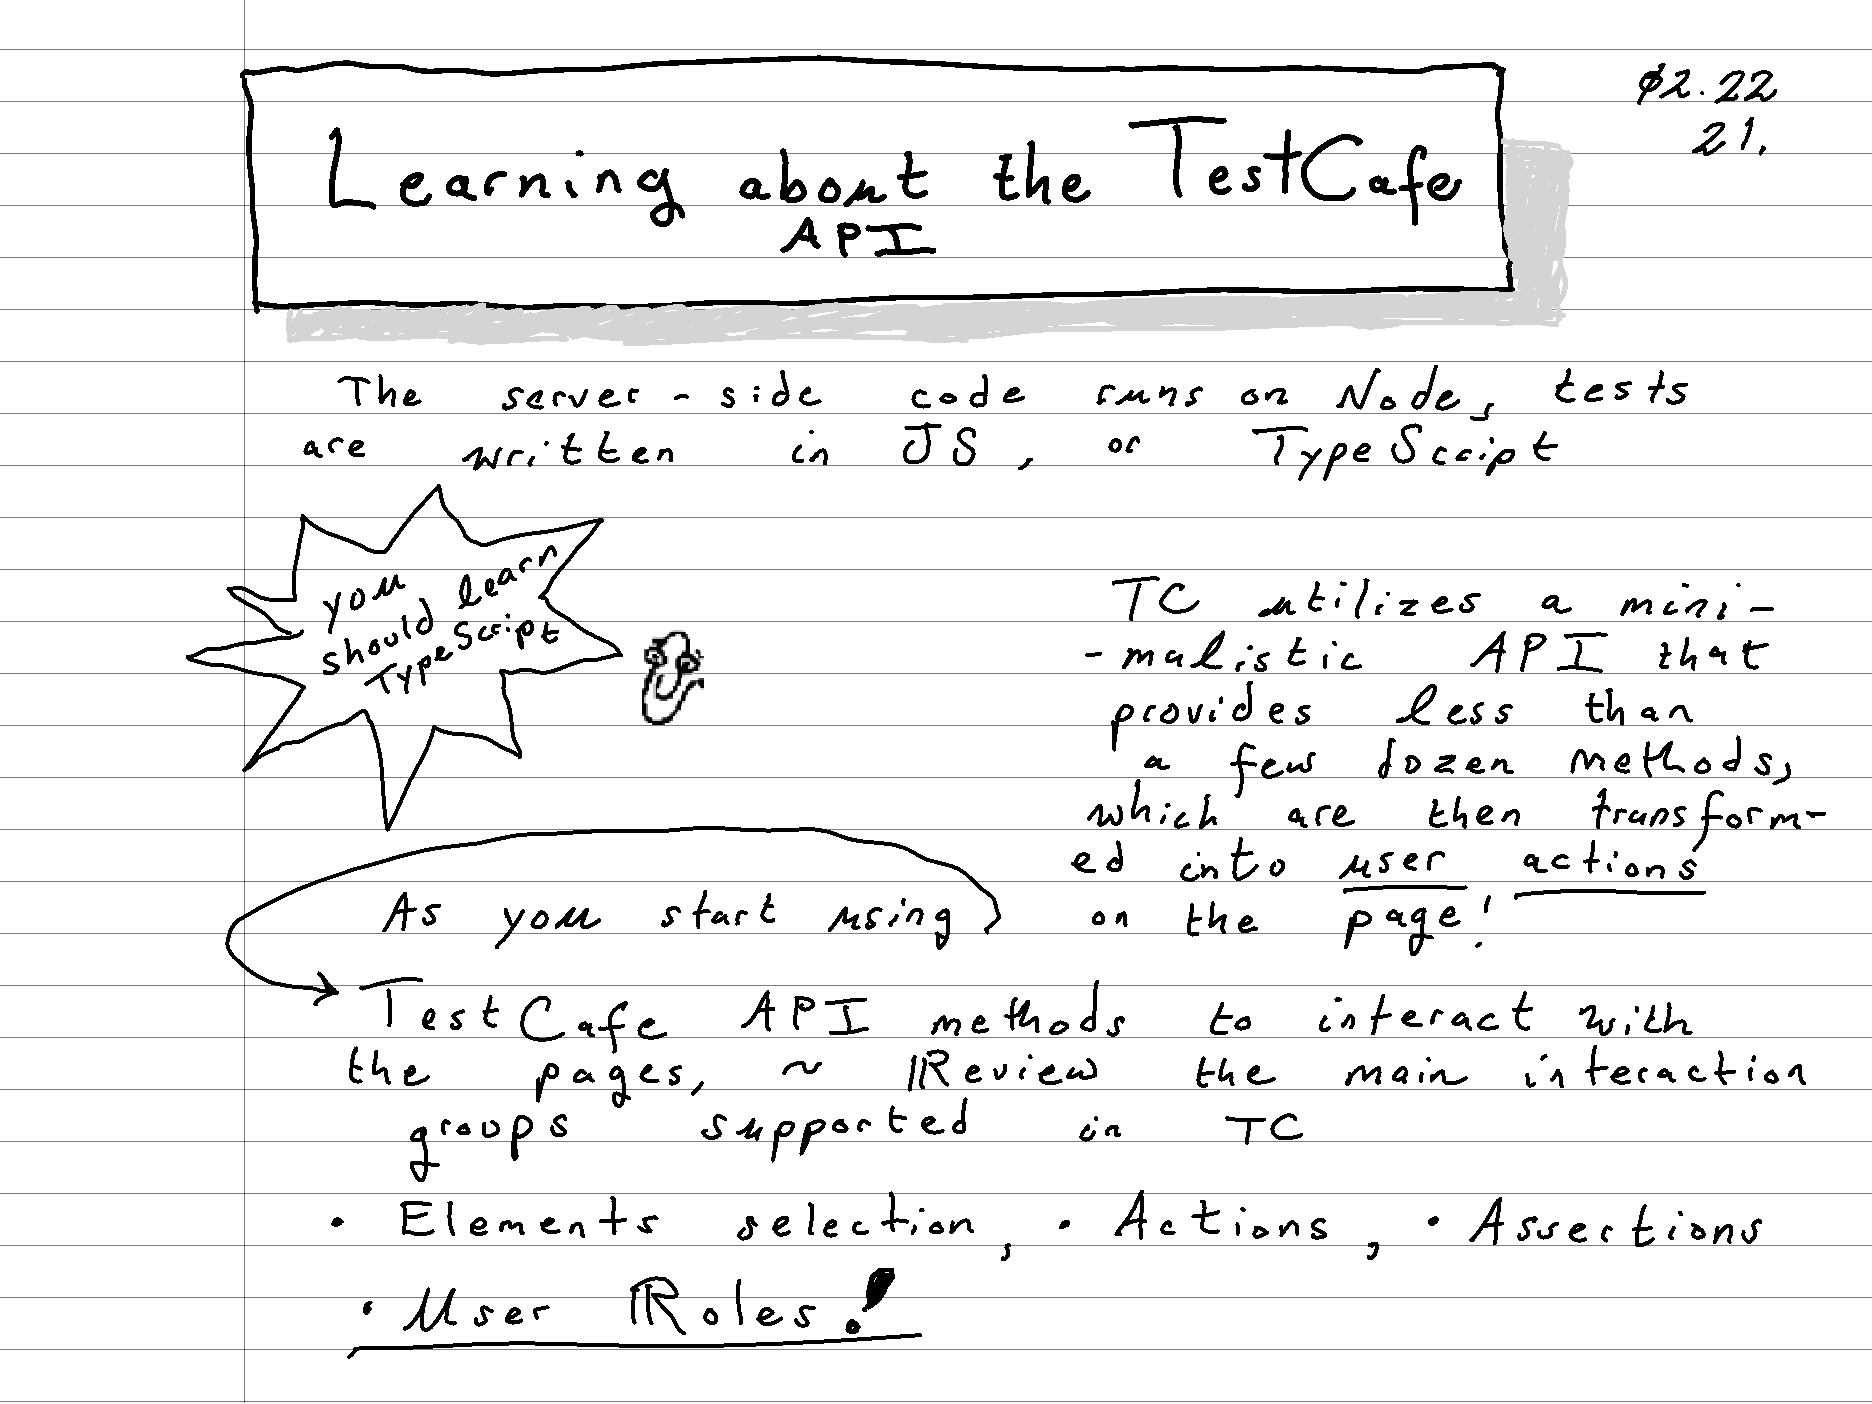 Learning about the TestCafe
API
02.22
21.
The server-side code runs on Node, tests
are written in JS, or TypeScript
you
should learn
TypeScript
TC utilizes a mini-
-malistic API that
provides less than
a few dozen methods,
which are then transform-
ed into user actions
on the page!
As you start using
TestCafe API methods to interact with
the pages, ~ Review the main interaction
groups supported in TC
• Elements selection, • Actions, • Assertions
• User Roles!